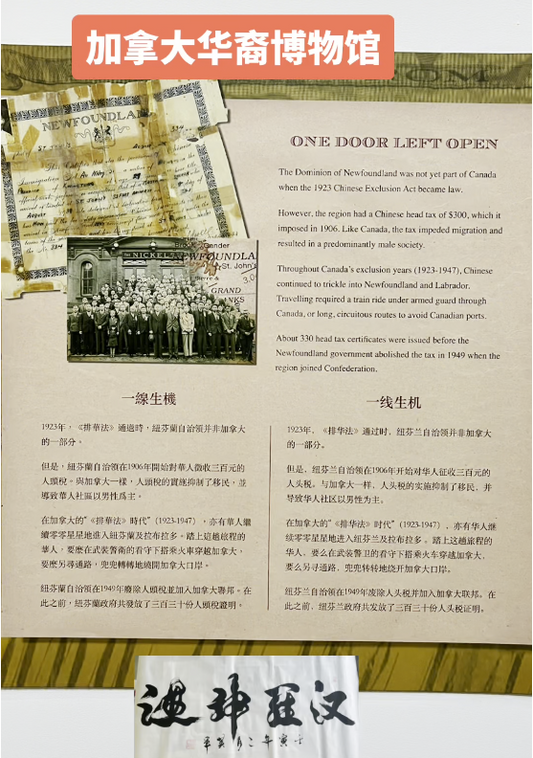 加拿大华裔博物馆
NEWFOUNDLAND
NICKEL
St. John's
GRAND
ONE DOOR LEFT OPEN
The Dominion of Newfoundland was not yet part of Canada
when the 1923 Chinese Exclusion Act became law.
However, the region had a Chinese head tax of $300, which it
imposed in 1906. Like Canada, the tax impeded migration and
resulted in a predominantly male society.
Throughout Canada's exclusion years (1923-1947), Chinese
continued to trickle into Newfoundland and Labrador.
Travelling required a train ride under armed guard through
Canada, or long, circuitous routes to avoid Canadian ports.
About 330 head tax certificates were issued before the
Newfoundland government abolished the tax in 1949 when the
region joined Confederation.
一線生機
1923年，《排華法》通過時，紐芬蘭自治領并非加拿大
的一部分。
但是，紐芬蘭自治領在1906年開始對華人徵收三百元的
人頭稅。與加拿大一樣，人頭稅的實施抑制了移民，並
導致華人社區以男性爲主。
在加拿大的"《排華法》時代"（1923-1947），亦有華人繼
續零零星星地進入紐芬蘭及拉布拉多。踏上這趟旅程的
華人，要麽在武裝警衛的看守下搭乘火車穿越加拿大，
要麽另尋通路，兜兜轉轉地繞開加拿大口岸。
紐芬蘭自治領在1949年廢除人頭稅並加入加拿大聯邦。在
此之前，紐芬蘭政府共發放了三百三十份人頭稅證明。
一线生机
1923年，《排华法》通过时，纽芬兰自治领并非加拿大
的一部分。
但是，纽芬兰自治领在1906年开始对华人征收三百元的
人头税。与加拿大一样，人头税的实施抑制了移民，并
导致华人社区以男性为主。
在加拿大的"《排华法》时代"（1923-1947），亦有华人继
续零零星星地进入纽芬兰及拉布拉多。踏上这趟旅程的
华人，要么在武装警卫的看守下搭乘火车穿越加拿大，
要么另寻通路，兜兜转转地绕开加拿大口岸。
纽芬兰自治领在1949年废除人头税并加入加拿大联邦。在
此之前，纽芬兰政府共发放了三百三十份人头税证明。